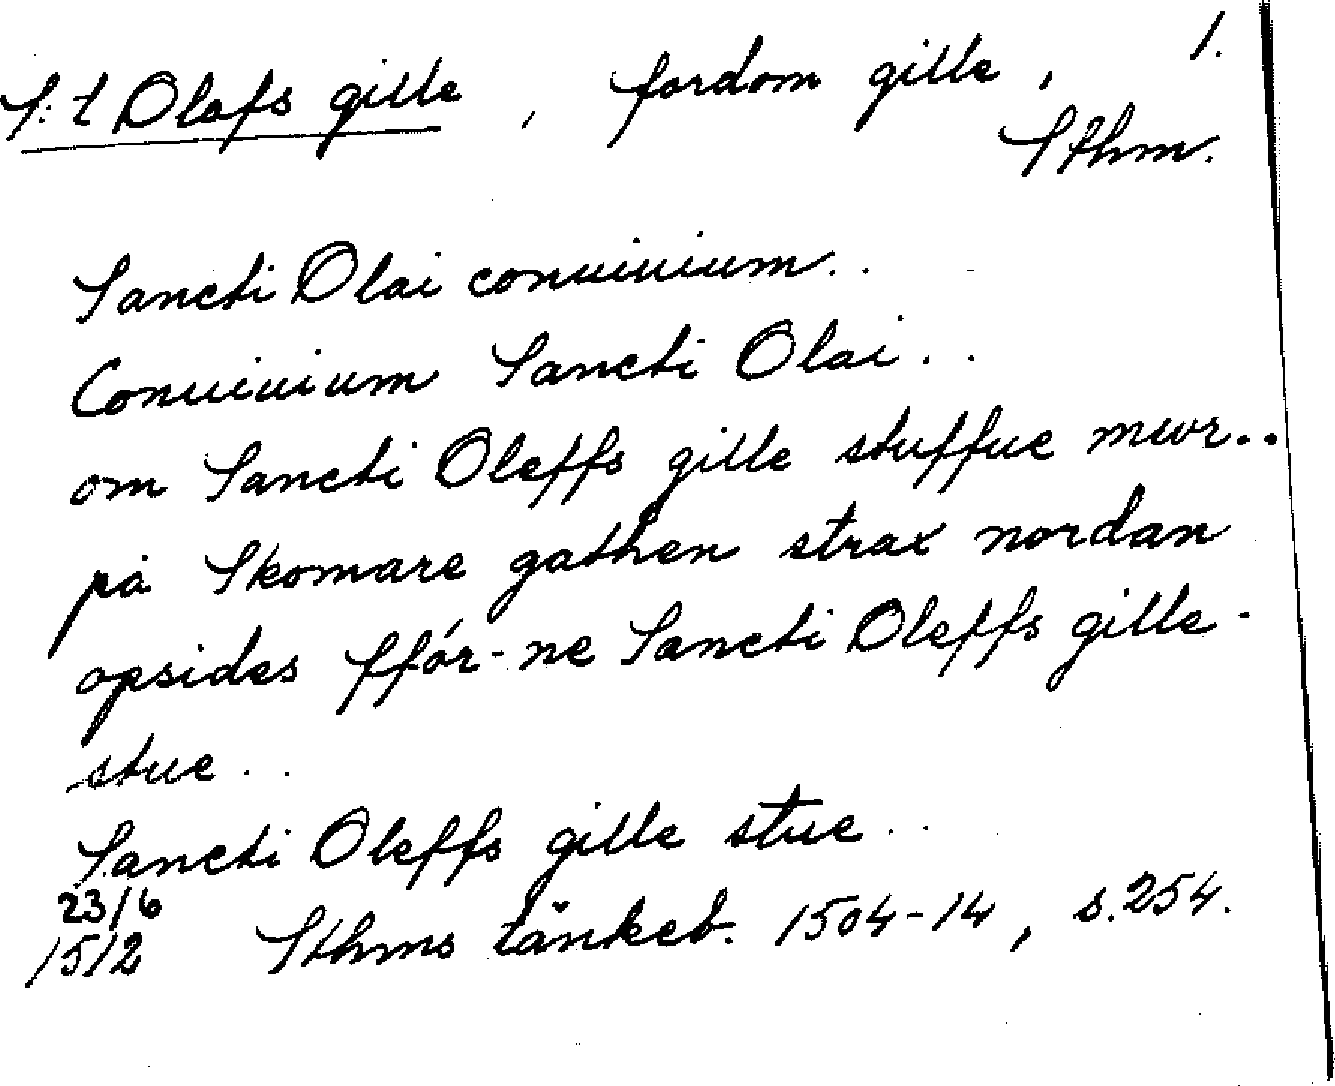 1.
S:t Olofs gille, fordom gille,
Sthm.
Sancti Olai conuiuium..
Conuiuium Sancti Olai..
om Sancti Oleffs gille stuffue mwr..
på Skomare gathen strax nordan
opsides ffór-ne Sancti Oleffs gille-
stue..
Sancti Oleffs gille stue..
23/6
1512 Sthms tänkeb. 1504-14, s.254.